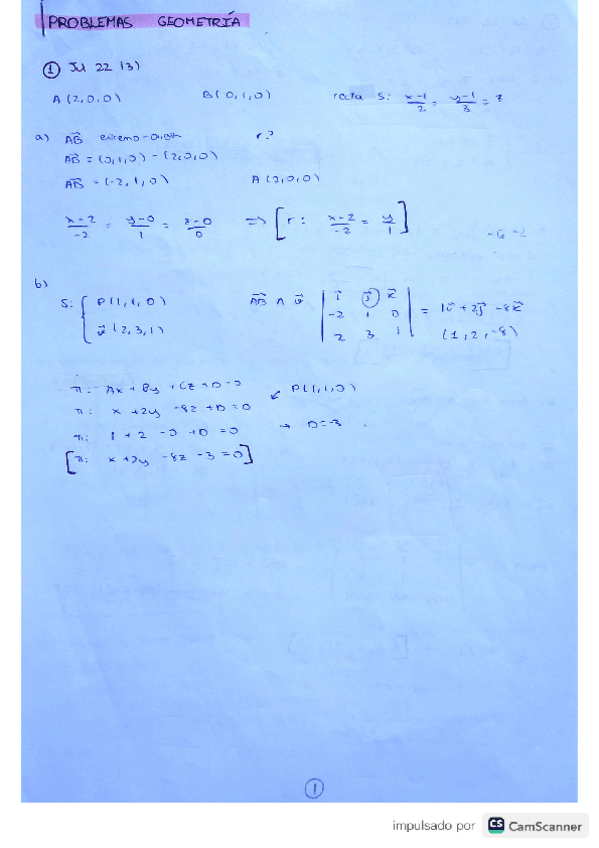 PROBLEMAS GEOMETRÍA
① Jul 22 (3)
A (2,0,0) B(0,1,0) recta S: x-1/2 = y-1/3 = z
a) AB extremo-origen r?
AB = (0,1,0) - (2,0,0)
AB = (-2,1,0) A(2,0,0)
x-2/-2 = y-0/1 = z-0/0 => [r: x-2/-2 = y/1]
b)
S: { P(1,1,0) AB ∧ v | i j k
v(2,3,1) -2 1 0
2 3 1 | = 1i + 2j - 8k
(1,2,-8)
π: Ax + By + Cz + D = 0 P(1,1,0)
π: x + 2y - 8z + D = 0
π: 1 + 2 - 0 + D = 0 → D = -3
[π: x + 2y - 8z - 3 = 0]
①
impulsado por CS CamScanner